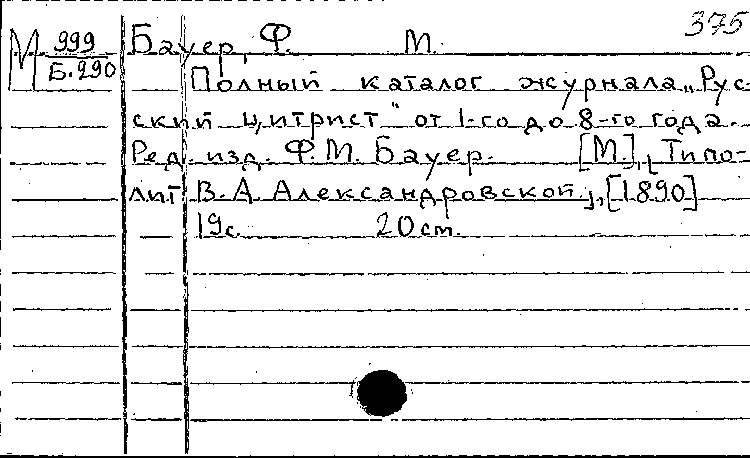 375
М 999
Б.290
Бауер, Ф. М.
Полный каталог журнала „Рус-
ский цитрист" от 1-го до 8-го года.
Ред. изд. Ф.М. Бауер. [М.], [Типо-
лит В.А. Александровской], [1890]
19с. 20 см.